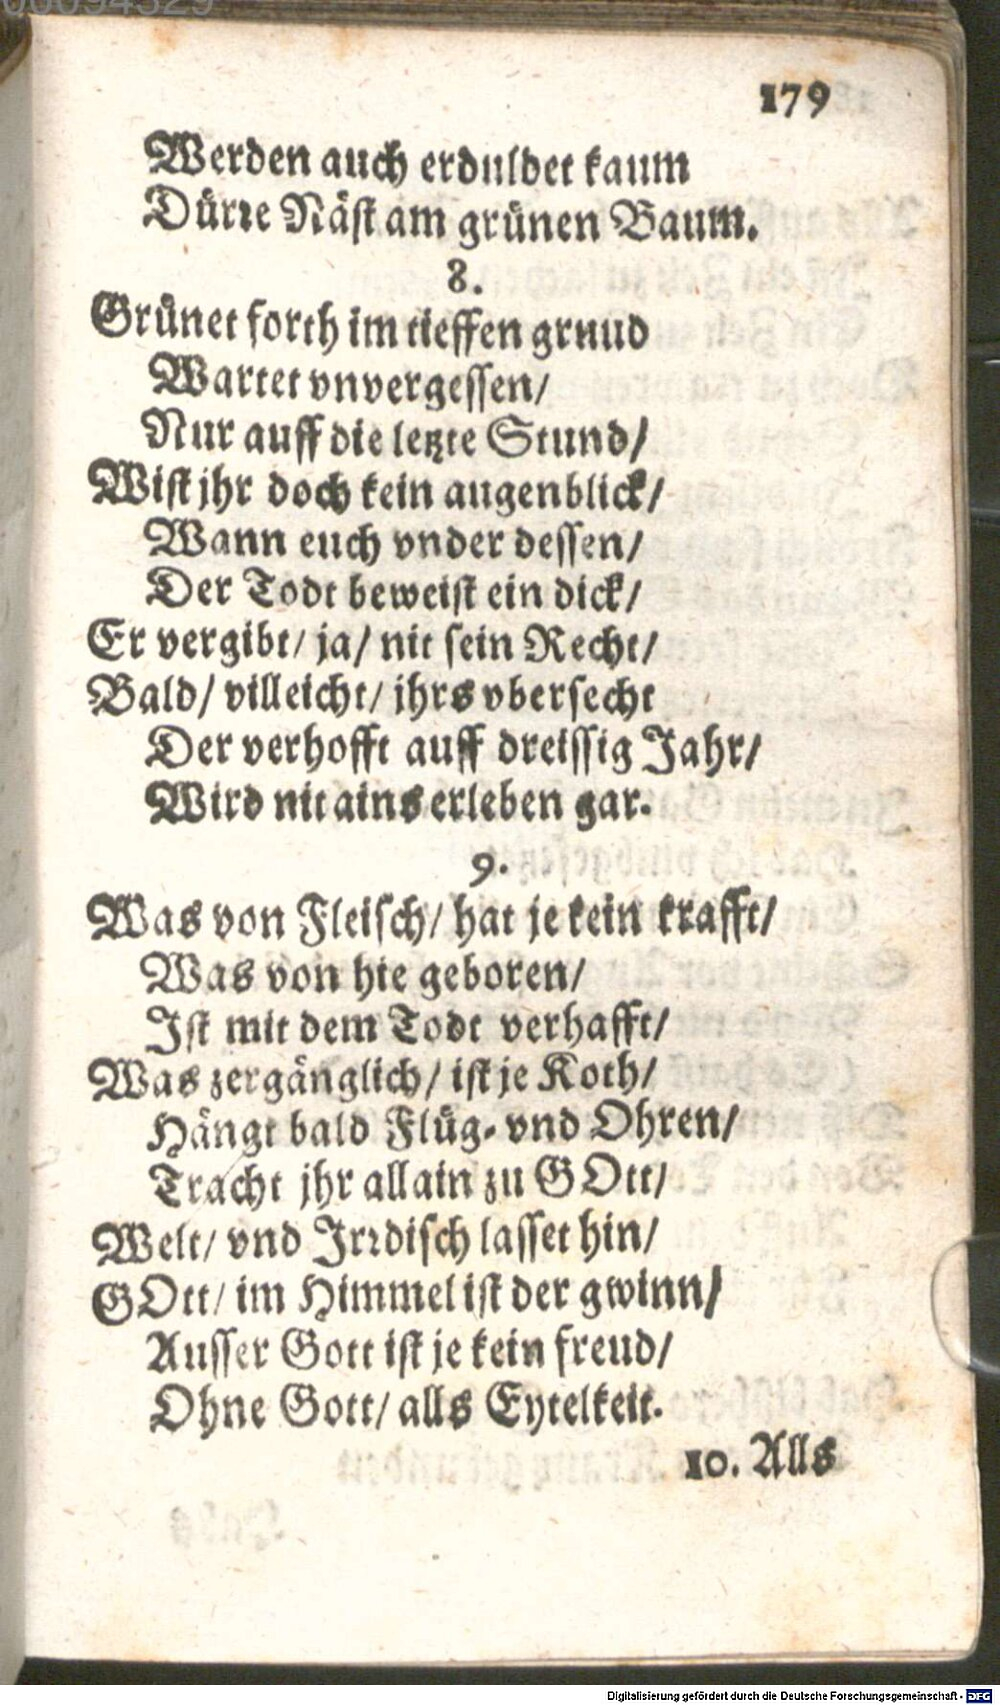 179
Werden auch erduldet kaum
Dürre Näst am grünen Baum.
8.
Grünet forth im tieffen grnud
Wartet vnvergessen/
Nur auff die letzte Stund/
Wist jhr doch kein augenblick/
Wann euch vnder dessen/
Der Todt beweist ein dick/
Er vergibt/ ja/ nit sein Recht/
Bald/ villeicht/ jhrs vbersecht
Der verhofft auff dreissig Jahr/
Wird nit ains erleben gar.
9.
Was von Fleisch/ hat je kein krafft/
Was von hie geboren/
Ist mit dem Todt verhafft/
Was zergänglich/ ist je Koth/
Hängt bald Flüg- vnd Ohren/
Tracht jhr allain zu GOtt/
Welt/ vnd Irrdisch lasset hin/
GOtt/ im Himmel ist der gwinn/
Ausser Gott ist je kein freud/
Ohne Gott/ alls Eytelkeit.
10. Alls
Digitalisierung gefördert durch die Deutsche Forschungsgemeinschaft - DFG